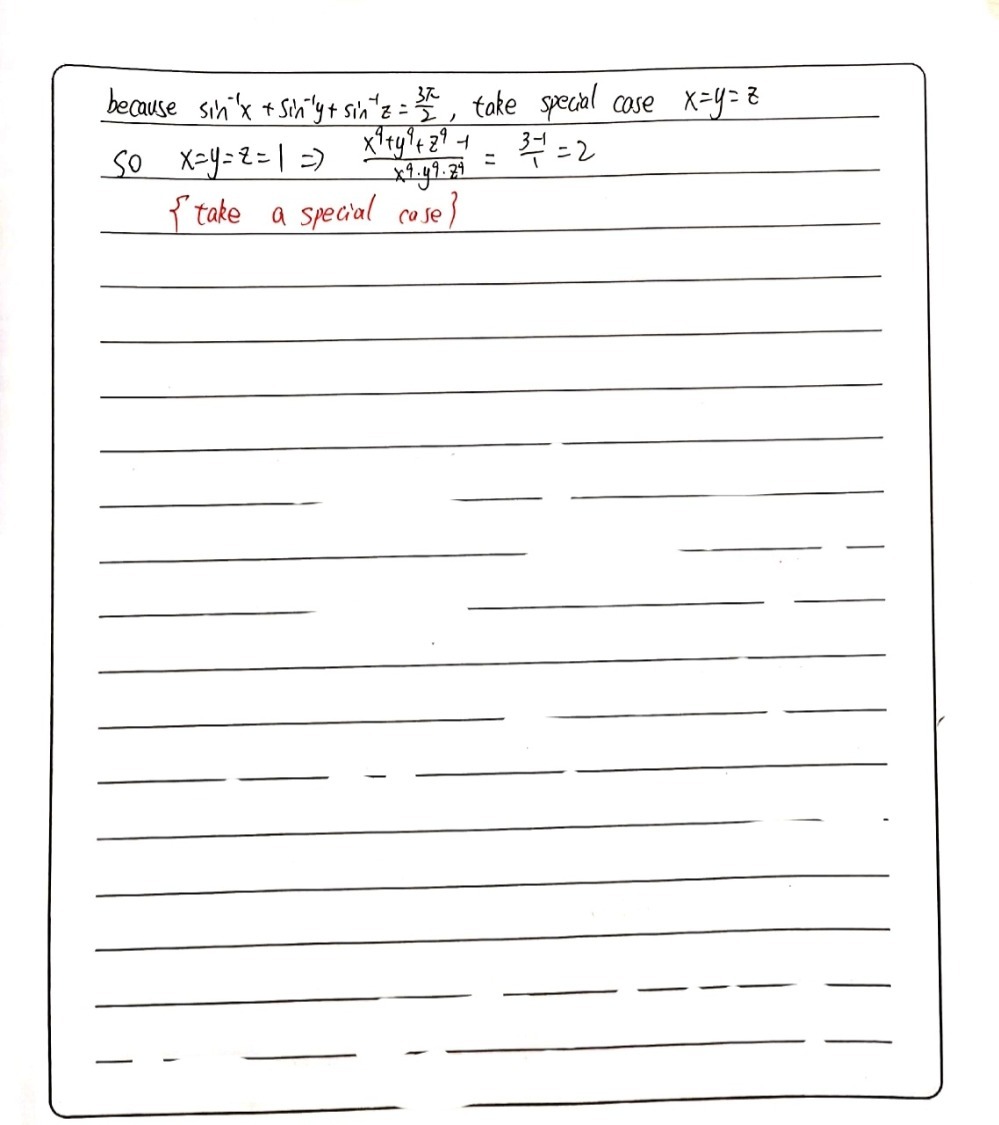 because sin⁻¹x + sin⁻¹y + sin⁻¹z = 3π/2, take special case x=y=z
so x=y=z=1 ⇒ (x⁹+y⁹+z⁹-1)/(x⁹·y⁹·z⁹) = (3-1)/1 = 2
{take a special case}